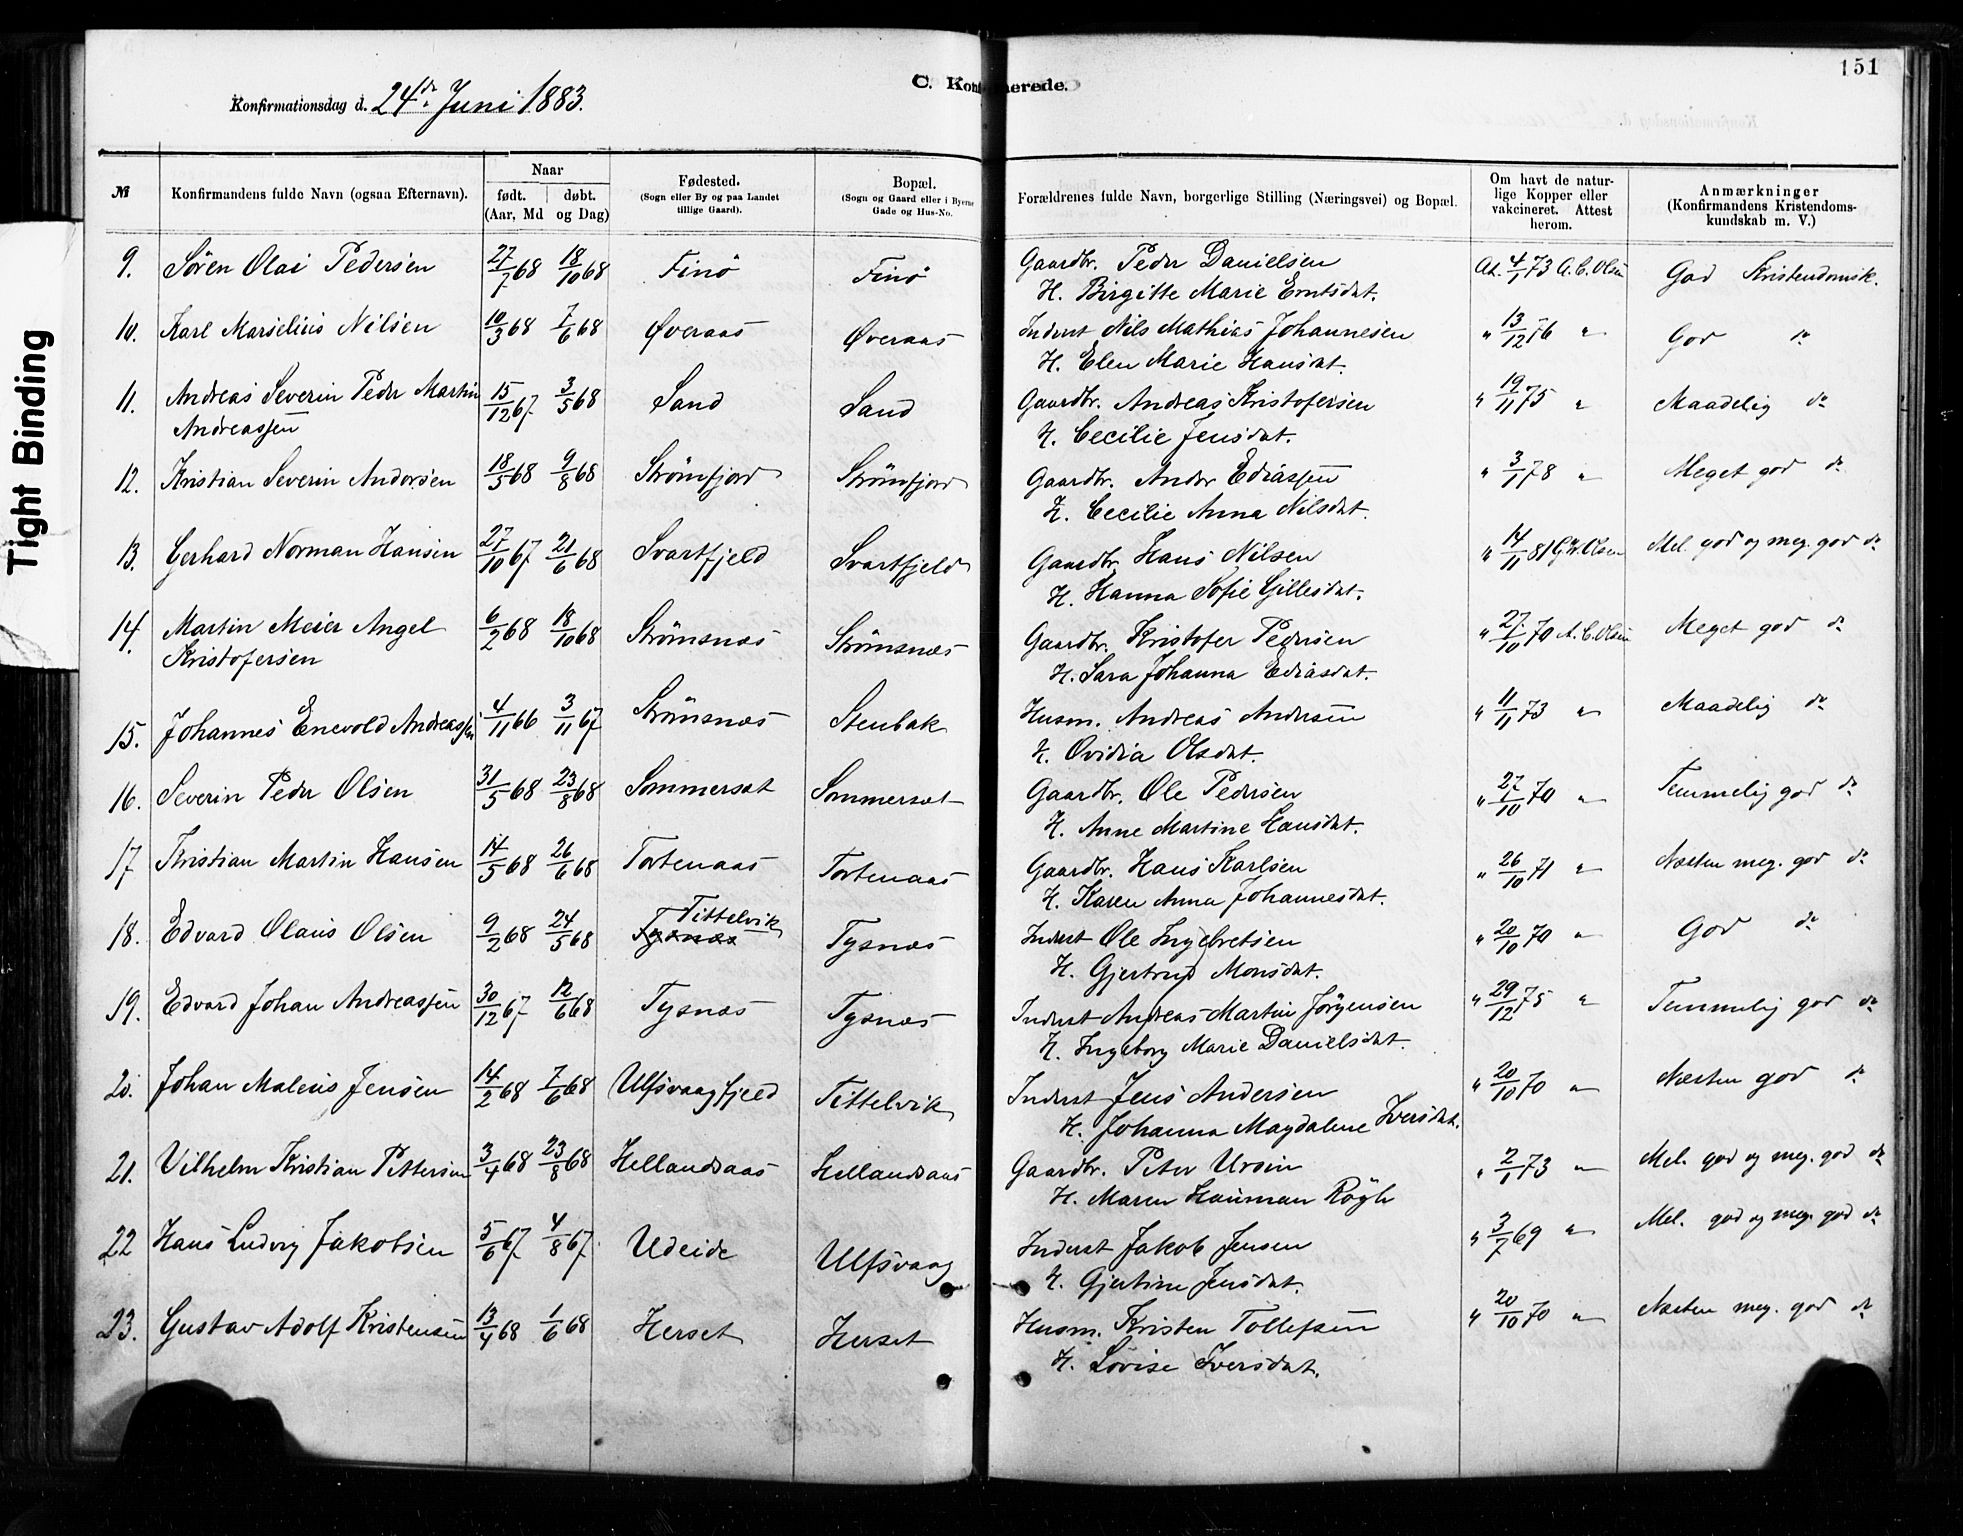 151
C. Konfirmerede.
Konfirmationsdag d. 24de Juni 1883.
№ Konfirmandens fulde Navn (ogsaa Efternavn). Naar født. døbt. (Aar, Md og Dag) Fødested. (Sogn eller By og paa Landet tillige Gaard). Bopæl. (Sogn og Gaard eller i Byerne Gade og Hus-No. Forældrenes fulde Navn, borgerlige Stilling (Næringsvei) og Bopæl. Om havt de naturlige Kopper eller vakcineret. Attest herom. Anmærkninger (Konfirmandens Kristendomskundskab m. V.)
9. Sören Olai Pedersen 27/7 68 18/10 68 Finö Finö Gaardbr. Peder Danielsen At. 4/1 73 A. C. Olsen God Kristendomsk.
H. Birgitte Marie Erntsdat.
10. Karl Marselius Nilsen 10/3 68 7/6 68 Øveraas Øveraas Inderst Nils Mathias Johannesen " 13/12 76 " God do
H. Elen Marie Hansdat.
11. Andreas Severin Peder Martin 15/12 67 3/5 68 Sand Sand Gaardbr. Andreas Kristofersen " 19/11 75 " Maadelig do
Andreassen H. Cecilie Jensdat.
12. Kristian Severin Andersen 18/5 68 9/8 68 Strömfjord Strömfjord Gaardbr. Ander Ediassen " 3/1 78 " Meget god do
H. Cecilie Anna Nilsdat.
13. Gerhard Norman Hansen 27/10 67 21/6 68 Svartfjeld Svartfjeld Gaardbr. Hans Nilsen " 14/11 81 Olsen Mel. god og meg. god do
H. Hanna Sofie Gillesdat.
14. Martin Meier Angel 6/2 68 18/10 68 Strömsnæs Strömsnæs Gaardbr. Kristofer Pedersen " 27/10 70 A. C. Olsen Meget god do
Kristofersen H. Sara Johanna Ediasdat.
15. Johannes Enevold Andreassen 4/11 66 3/11 67 Strömsnæs Stenbak Husm. Andreas Andersen " 11/11 73 " Maadelig do
H. Ovidia Olsdat.
16. Severin Peder Olsen 31/5 68 23/8 68 Sommersæt Sommersæt Gaardbr. Ole Pedersen " 27/10 70 " Temmelig god do
H. Anne Martine Hansdat.
17 Kristian Martin Hansen 14/5 68 26/6 68 Tortenaas Tortenaas Gaardbr. Hans Karlsen " 26/10 71 " Næsten meg. god do
H. Karen Anna Johannesdat.
18. Edvard Olaus Olsen 9/2 68 24/5 68 Tittelvik Tysnæs Tysnæs Inderst Ole Ingebretsen " 20/10 70 " God do
H. Gjertrud Monsdat.
19. Edvard Johan Andreassen 30/12 67 12/6 68 Tysnæs Tysnæs Inderst Andreas Martin Jörgensen " 29/12 75 " Temmelig god do
H. Ingeborg Marie Danielsdat.
20. Johan Maleus Jensen 14/2 68 7/6 68 Ulfsvaagfjeld Tittelvik Inderst Jens Andersen " 20/10 70 " Næsten god do
H. Johanna Magdalene Iversdat.
21. Vilhelm Kristian Pettersen 3/4 68 23/8 68 Hellandsaas Hellandsaas Gaardbr. Peter Ursin " 2/1 73 " Mel. god og meg. god do
H. Maren Hauman Rögh
22 Hans Ludvig Jakobsen 5/6 67 4/8 67. Udeide Ulfsvaag Inderst Jakob Jensen " 3/7 69 " Mel. god og meg. god do
H. Gjertine Jensdat.
23. Gustav Adolf Kristensen 13/4 68 1/6 68 Herset Herset Husm. Kristen Tollefsen " 20/10 70 " Næsten meg. god do
H. Lovise Iversdat.
Tight Binding